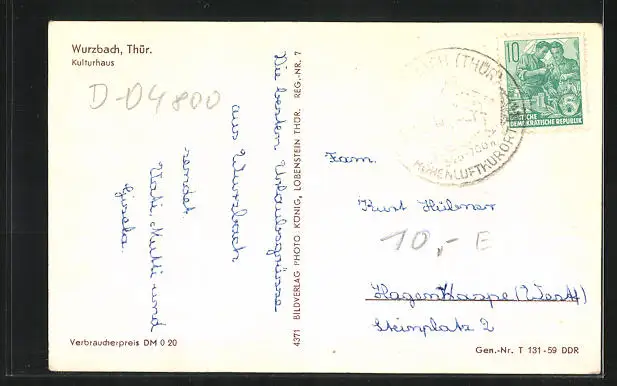 Wurzbach, Thür.
Kulturhaus
D-04800
Die besten Urlaubsgrüsse
aus Wurzbach
sendet
Vati, Mutti und
Gisela.
Verbraucherpreis DM 0 20
4371 BILDVERLAG PHOTO KÖNIG, LOBENSTEIN THÜR. REG.-NR. 7
(THÜR
HÖHENLUFTKURORT
10
DEUTSCHE
DEMOKRATISCHE REPUBLIK
Fam.
Kurt Hübner
10,- E
Hagen Haspe (Westf)
Steinplatz 2
Gen.-Nr. T 131-59 DDR